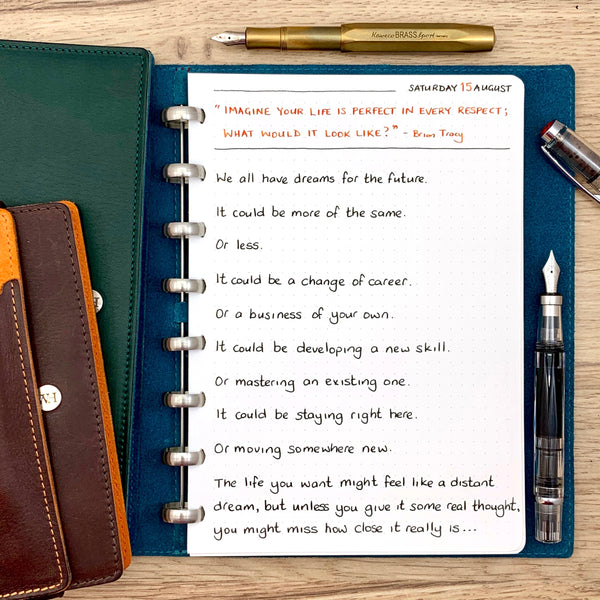 Kaweco BRASS Sport
SATURDAY 15 AUGUST
"IMAGINE YOUR LIFE IS PERFECT IN EVERY RESPECT;
WHAT WOULD IT LOOK LIKE?" - Brian Tracy
We all have dreams for the future.
It could be more of the same.
Or less.
It could be a change of career.
Or a business of your own.
It could be developing a new skill.
Or mastering an existing one.
It could be staying right here.
Or moving somewhere new.
The life you want might feel like a distant
dream, but unless you give it some real thought,
you might miss how close it really is...